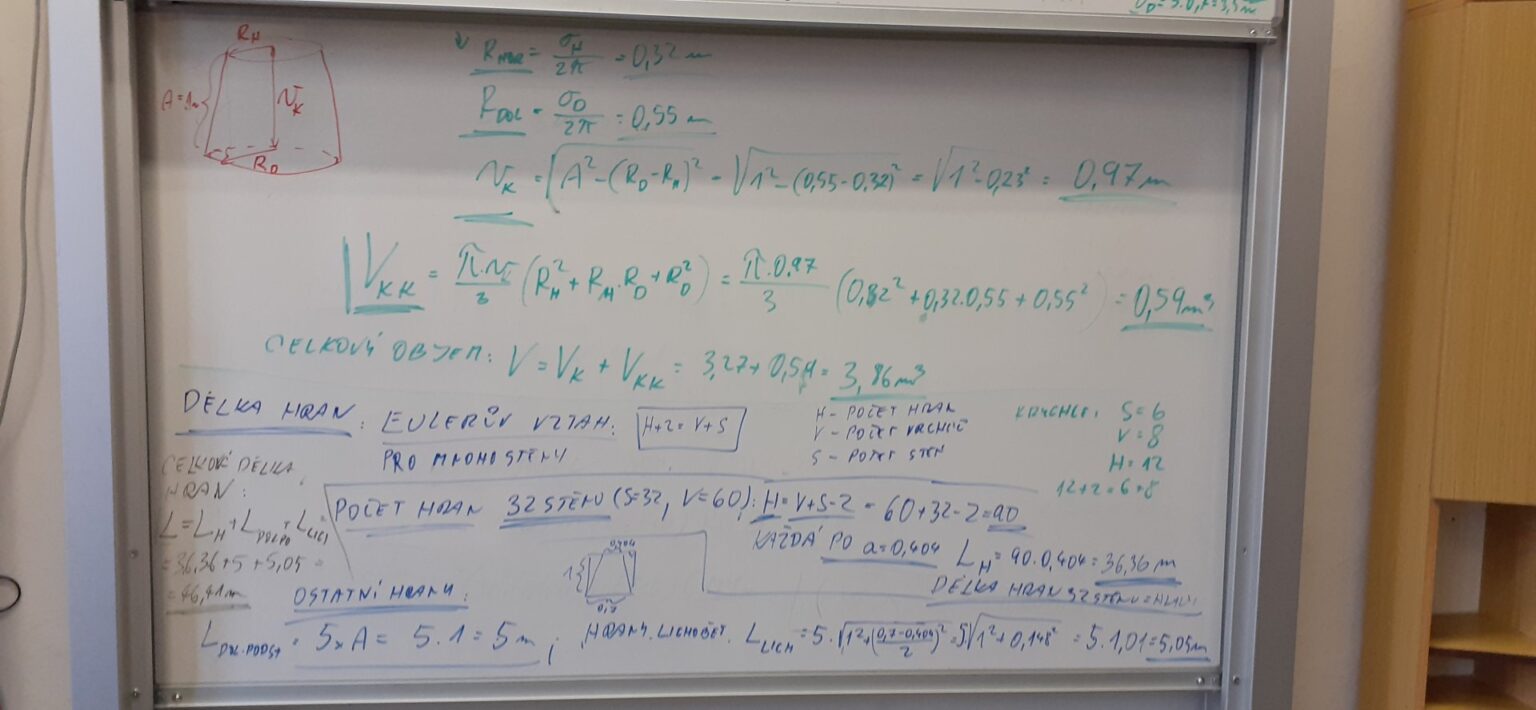 R_H
A=1m
v_K
R_D
R_HOR = σ_H/2π = 0,32 m
R_DOL = σ_D/2π = 0,55 m
v_K = √A²-(R_D-R_H)² = √1²-(0,55-0,32)² = √1²-0,23² = 0,97m
V_KK = π.v_K/3 (R_H² + R_H.R_D + R_D²) = π.0,97/3 (0,32² + 0,32.0,55 + 0,55²) = 0,59m³
CELKOVÝ OBJEM: V = V_K + V_KK = 3,27+0,59 = 3,86m³
DÉLKA HRAN: EULERŮV VZTAH: H+2=V+S
PRO MNOHOSTĚNY
H - POČET HRAN
V - POČET VRCHOLŮ
S - POČET STĚN
KRYCHLE: S=6
V=8
H=12
12+2=6+8
CELKOVÁ DÉLKA
HRAN:
L=L_H+L_DOLPO+L_LICI
=36,36+5+5,05=
=46,41m
POČET HRAN 32STĚNU (S=32, V=60): H=V+S-2 = 60+32-2=90
KAŽDÁ PO a=0,404 L_H=90.0,404=36,36 m
DÉLKA HRAN 32STĚNU=HLAVI
0,404
1
0,7
OSTATNÍ HRANY:
L_DOL.PODST = 5xA = 5.1=5m; HRANY.LICHOBĚŽ. L_LICH = 5.√1²+(0,7-0,404/2)² = 5√1²+0,148² = 5.1,01=5,05m